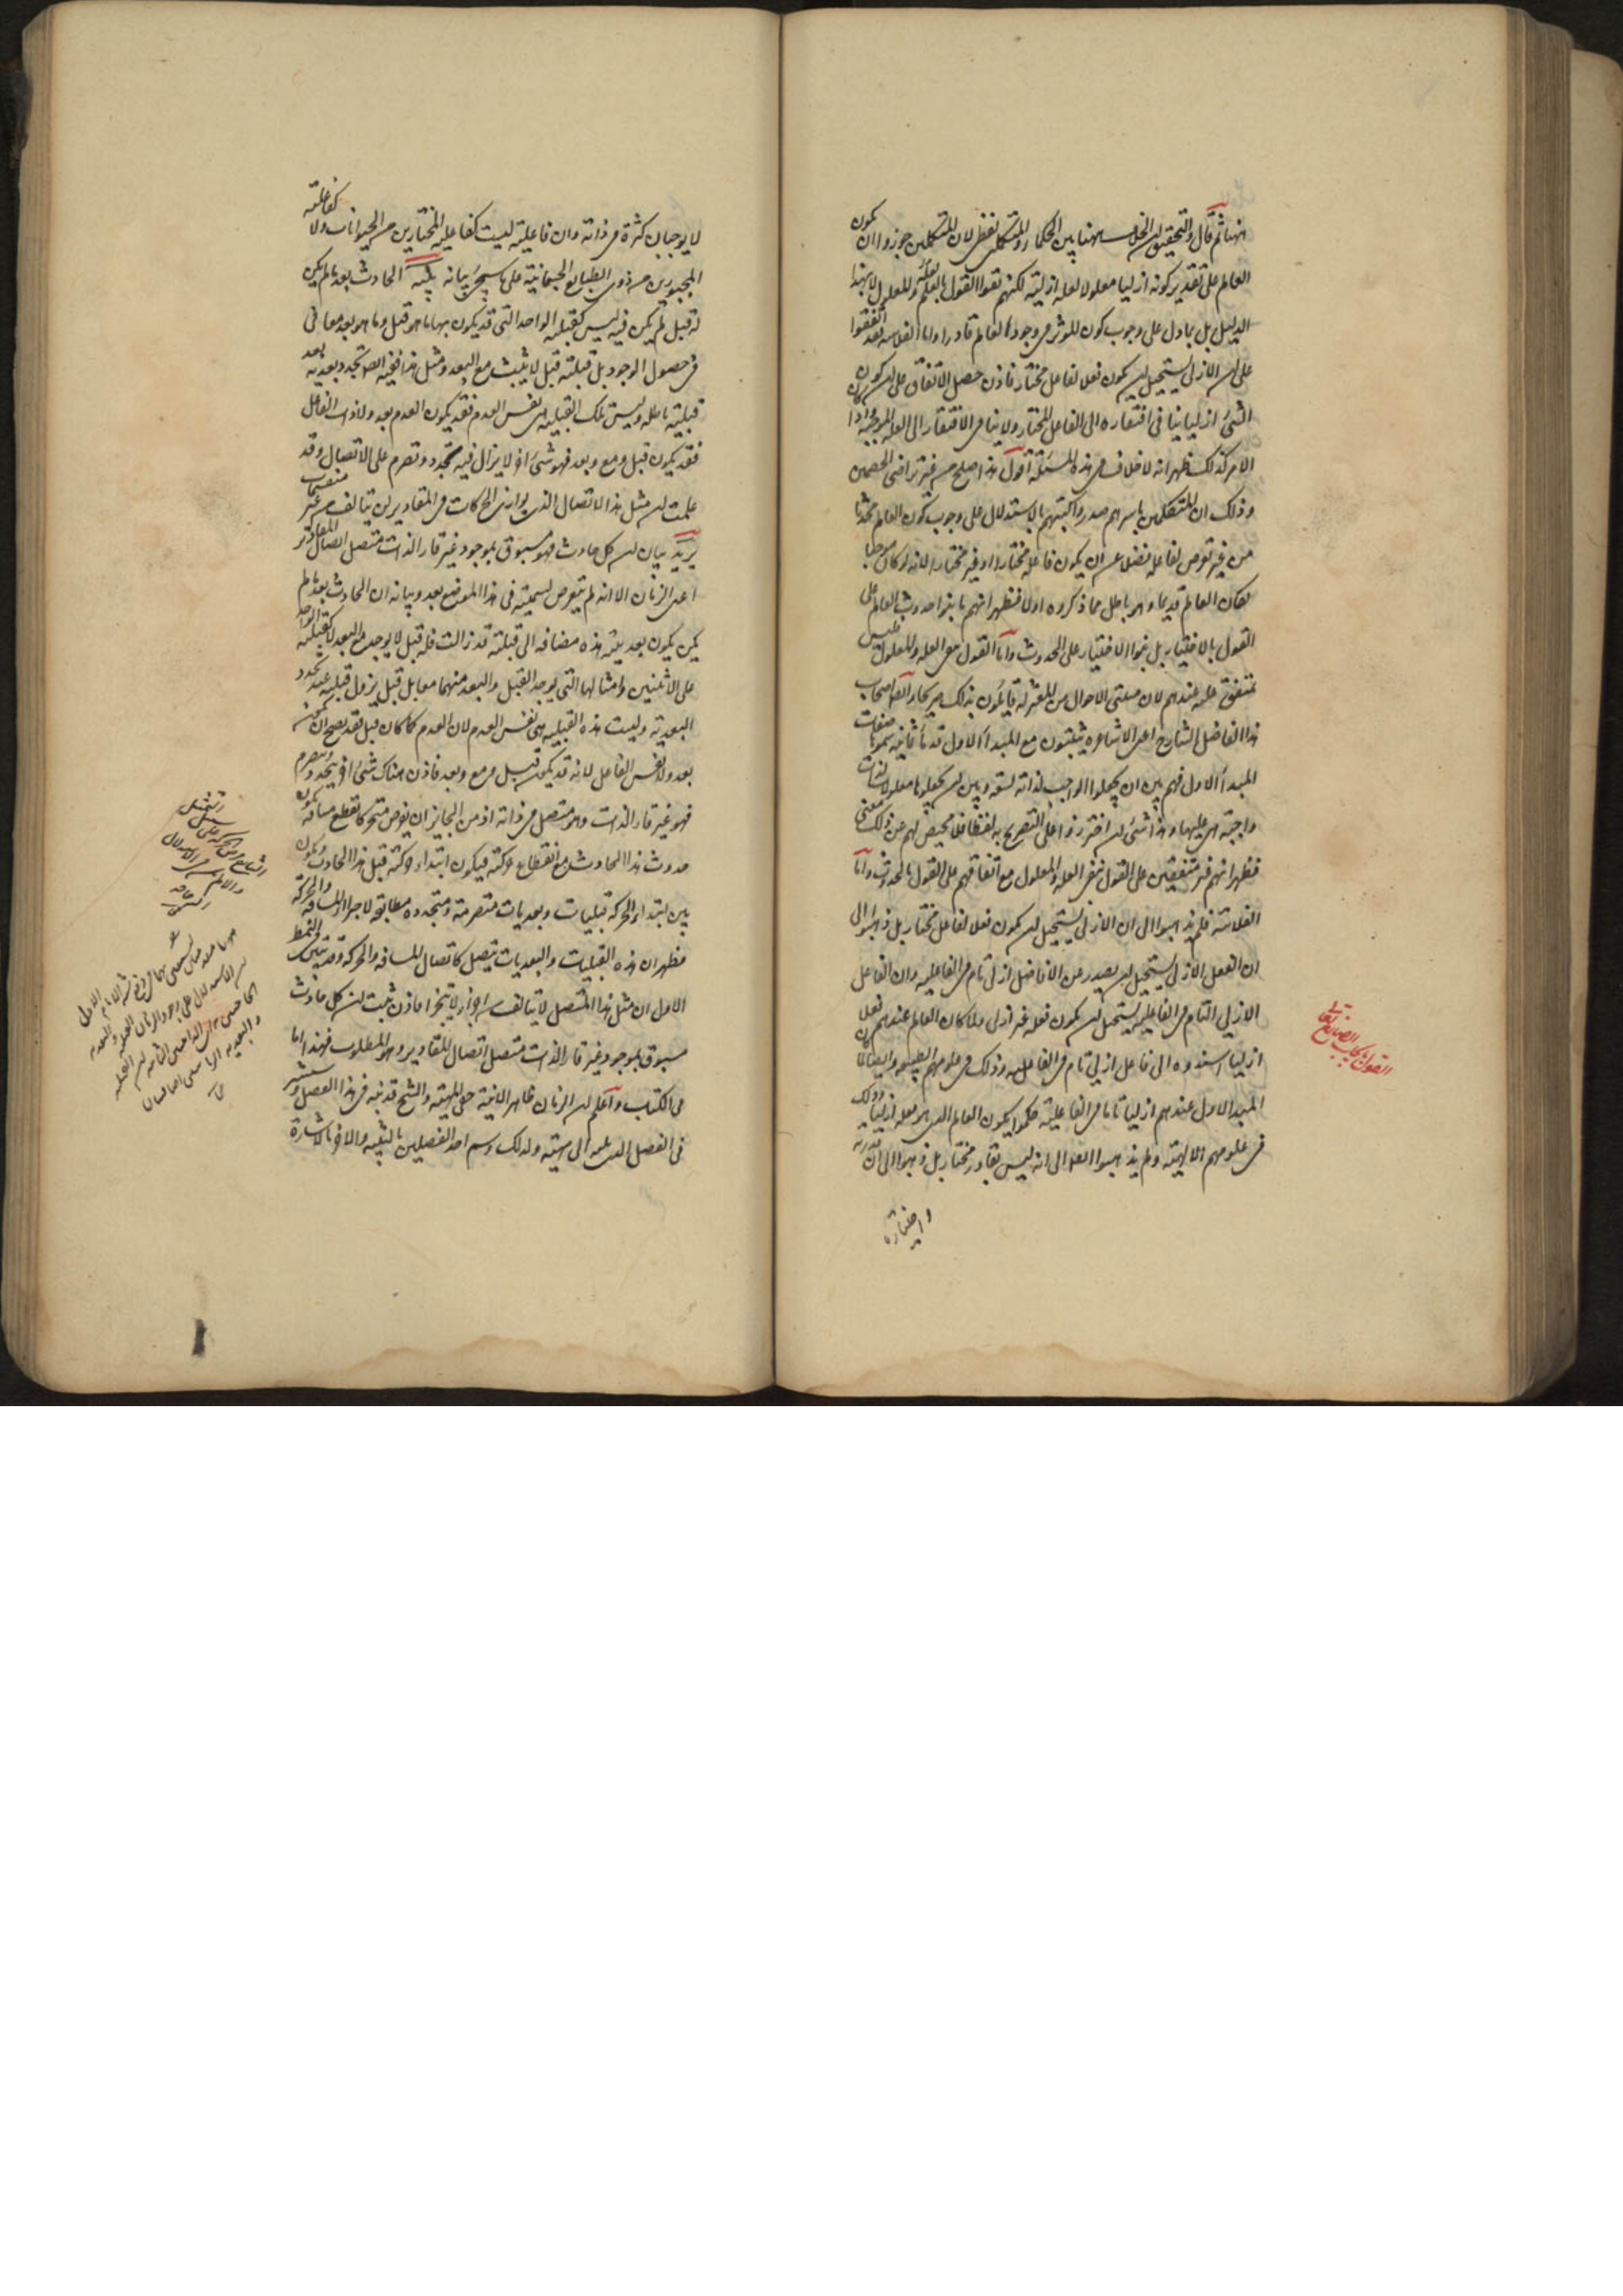 انهما ثم قال والتحقيق ان الخلاف ههنا بين الحكماء والمتكلمين لفظي لان المتكلمين جوزوا ان يكون
العالم على تقدير كونه ازليا معلولا لعلة ازلية لكنهم نفوا القول بالعلة والمعلول لا بهذا
الدليل بل بما دل على وجوب كون المؤثر في وجود العالم قادرا واما الفلاسفة فقد اتفقوا
على ان الازلي يستحيل ان يكون فعلا لفاعل مختار فاذن حصل الاتفاق على ان كون
الشئ ازليا ينافي افتقاره الى الفاعل المختار ولا ينافي الافتقار الى العلة الموجبة واذا كان
الامر كذلك ظهر انه لا خلاف في هذه المسئلة اقول هذا صلح من غير تراضي الخصمين
وذلك ان المتكلمين باسرهم صدروا كتبهم بالاستدلال على وجوب كون العالم محدثا
من غير تعرض لفاعله فضلا عن ان يكون فاعله مختارا او غير مختار
لكان العالم قديما وهو باطل مما ذكروه اولا فظهر انهم ما بنوا حدوث العالم على
القول بالاختيار بل بنوا الاختيار على الحدوث واما القول بنفى العلة والمعلول فليس
بمتفق عليه عندهم لان مثبتى الاحوال من المعتزلة قائلون بذلك صريحا وايضا اصحاب
هذا الفاضل الشارح اعنى الاشاعرة يثبتون مع المبدأ الاول قدماء ثمانية سموها صفات
المبدأ الاول فهم بين ان يجعلوا الواجب لذاته تسعة وبين ان يجعلوها معلولات لذات
واجبة هى عليها وهذا شئ ان احترزوا على التصريح به لفظا فلا محيص لهم عن ذلك معنى
فظهر انهم غير متفقين على القول بنفى العلة والمعلول مع اتفاقهم على القول بالحدوث واما
الفلاسفة فلم يذهبوا الى ان الازلي يستحيل ان يكون فعلا لفاعل مختار بل ذهبوا الى
ان الفعل الازلي يستحيل ان يصدر عن الا فاعل ازلي تام في الفاعلية وان الفاعل
الازلي التام في الفاعلية يستحيل ان يكون فعله غير ازلي ولما كان العالم عندهم فعلا
ازليا اسندوه الى فاعل ازلي تام في الفاعلية وذلك في علومهم الطبيعية وايضا لما كان
المبدأ الاول عندهم ازليا تاما في الفاعلية حكموا بكون العالم الذى هو فعله ازليا وذلك
في علومهم الالهية ولم يذهبوا ايضا الى انه ليس بقادر مختار بل ذهبوا الى ان قدرته
واختياره
لا يوجبان كثرة في ذاته وان فاعليته ليست كفاعلية المختارين من الحيوانات ولا كفاعلية
المجبورين من ذوي الطبايع الجسمانية على ما سيجئ بيانه تنبيه الحادث بعد ما لم يكن
له قبل لم يكن فيه ليس كقبلية الواحد التى قد يكون بها ما هو قبل وما هو بعد معا في
في حصول الوجود بل قبلية قبل لا يثبت مع البعد ومثل هذا ففيه ايضا تجدد بعدية بعد
قبلية باطلة وليس تلك القبلية هى نفس العدم فقد يكون العدم بعد ولا ذات الفاعل
فقد يكون قبل ومع وبعد فهو شئ اخر لا يزال فيه تجدد وتصرم على الاتصال وقد
علمت ان مثل هذا الاتصال الذى يوازى الحركات في المقادير لن يتألف من غير منقسمات
يريد بيان ان كل حادث فهو مسبوق بموجود غير قار الذات متصل اتصال المقادير
اعنى الزمان الا انه لم يتعرض لتسميته في هذا الموضع بعد وبيانه ان الحادث بعد ما لم
يكن يكون بعديته هذه مضافة الى قبلية قد زالت فله قبل لا يوجد مع البعد لا كقبلية الواحد
على الاثنين وامثالها التى يوجد القبل والبعد منهما معا بل قبل يزول قبليته عند تجدد
البعدية وليست هذه القبلية هى نفس العدم لان العدم كما كان قبل فقد يصح ان يكون
بعد ولا نفس الفاعل لانه قد يكون قبل ومع وبعد فاذن هناك شئ اخر يتجدد ويتصرم
فهو غير قار الذات وهو متصل في ذاته اذ من الجائز ان يفرض متحركا يقطع مسافة يكون
حدوث هذا الحادث مع انقطاع حركته فيكون ابتداء حركته قبل هذا الحادث ويكون
بين ابتداء الحركة قبليات وبعديات متصرمة ومتجددة مطابقة لاجزاء المسافة والحركة
فظهر ان هذه القبليات والبعديات متصل كاتصال المسافة والحركة وقد تبين في النمط
الاول ان مثل هذا المتصل لا يتألف من اجزاء لا تتجزا فاذن ثبت ان كل حادث
مسبوق بموجود غير قار الذات متصل اتصال المقادير وهو المطلوب فهذا ما
في الكتاب واعلم ان الزمان ظاهر الانية خفى المهية والشيخ قد نبه في هذا الفصل وسيشير
في الفصل الذى يليه الى مهيته ولذلك وسم احد الفصلين بالتنبيه والاخر بالاشارة